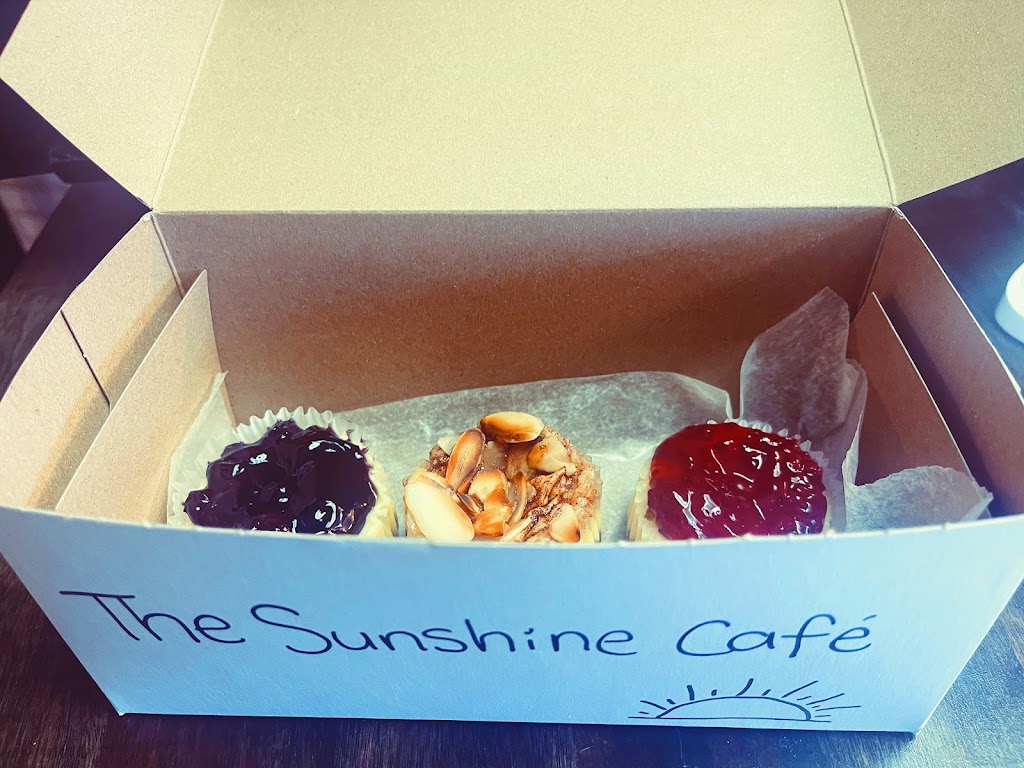 The Sunshine Café